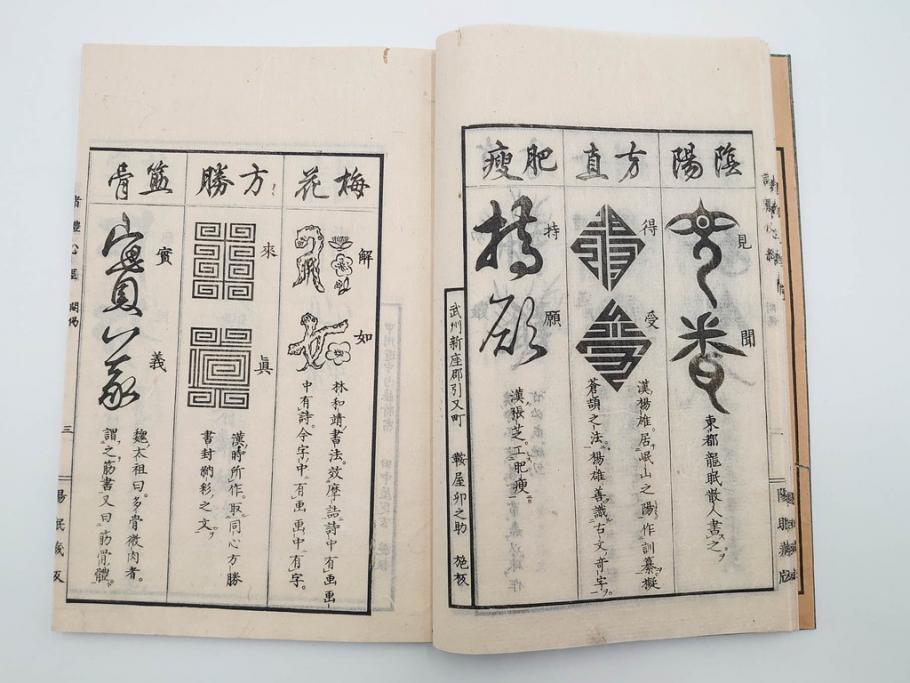 陰陽
見聞
東都龍眠散人書之。
方直
得受
漢楊雄。居岷山之陽作訓纂擬
蒼頡之法。楊雄善識古文奇字。
肥瘦
持願
持願
漢張芝。工肥瘦。
武州新座郡引又町 鞍屋卯之助 施板
梅花
解如
林和靖書法。效摩詰詩中有画画
中有詩。今字中有画画中有字。
方勝
來眞
漢時所作。取同心方勝
書封納彩之文。
筋骨
實義
實義
魏太祖曰。多骨微肉者。
謂之筋書又曰筋骨體。
三